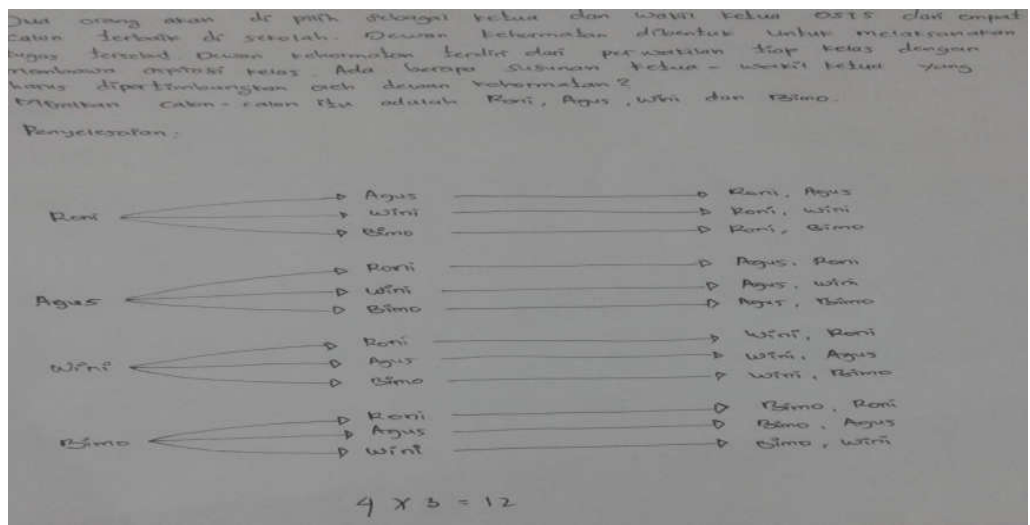 Dua orang akan di pilih sebagai ketua dan wakil ketua OSIS dari empat
calon terbaik di sekolah. Dewan kehormatan dibentuk untuk melaksanakan
tugas tersebut. Dewan kehormatan terdiri dari perwakilan tiap kelas dengan
membawa aspirasi kelas. Ada berapa susunan ketua - wakil ketua yang
harus dipertimbangkan oleh dewan kehormatan?
Misalkan calon-calon itu adalah Roni, Agus, Wini dan Bimo.
Penyelesaian:
Agus Roni, Agus
Roni Wini Roni, Wini
Bimo Roni, Bimo
Roni Agus, Roni
Agus Wini Agus, Wini
Bimo Agus, Bimo
Roni Wini, Roni
Wini Agus Wini, Agus
Bimo Wini, Bimo
Roni Bimo, Roni
Bimo Agus Bimo, Agus
Wini Bimo, Wini
4 x 3 = 12